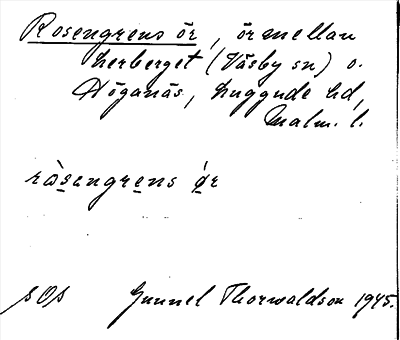 Rosengrens ör, ör mellan
herberget (Väsby sn) o.
Höganäs, Luggude hd,
Malm. l.
ràsengrens ǿr
SOS Gunnel Thorwaldson 1945.